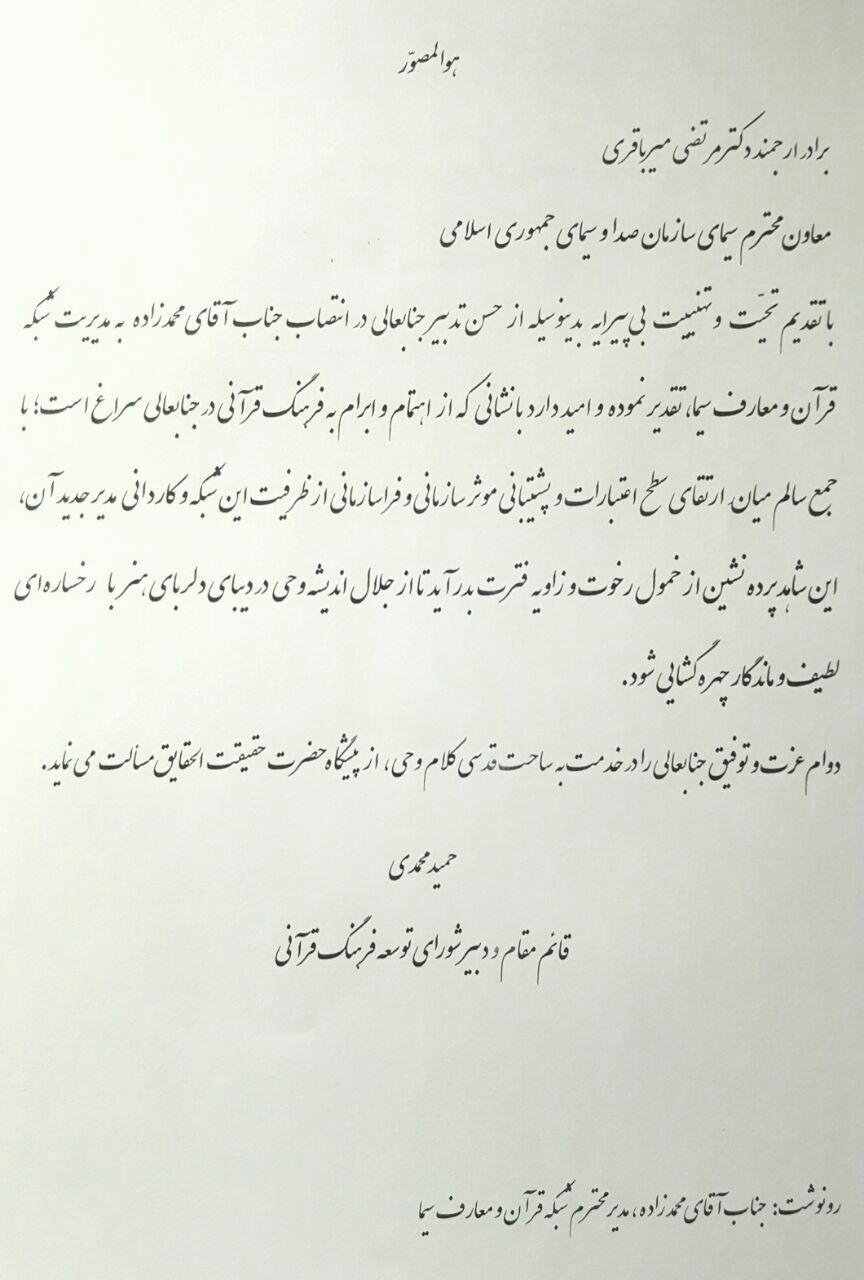 هوالمصوّر
برادر ارجمند دکتر مرتضی میرباقری
معاون محترم سیمای سازمان صدا و سیمای جمهوری اسلامی
با تقدیم تحیّت و تهنیت بی پیرایه بدینوسیله از حسن تدبیر جنابعالی در انتصاب جناب آقای محمدزاده به مدیریت شبکه
قرآن و معارف سیما، تقدیر نموده و امید دارد با نشانی که از اهتمام و ابرام به فرهنگ قرآنی در جنابعالی سراغ است؛ با
جمع سالم میان ارتقای سطح اعتبارات و پشتیبانی موثر سازمانی و فراسازمانی از ظرفیت این شبکه و کاردانی مدیر جدید آن،
این شاهد پرده نشین از خمول رخوت و زاویه فترت بدر آید تا از جلال اندیشه وحی در دیبای دلربای هنر با رخساره ای
لطیف و ماندگار چهره گشایی شود.
دوام عزت و توفیق جنابعالی را در خدمت به ساحت قدسی کلام وحی، از پیشگاه حضرت حقیقت الحقایق مسألت می نماید.
حمید محمدی
قائم مقام و دبیر شورای توسعه فرهنگ قرآنی
رونوشت: جناب آقای محمدزاده، مدیر محترم شبکه قرآن و معارف سیما